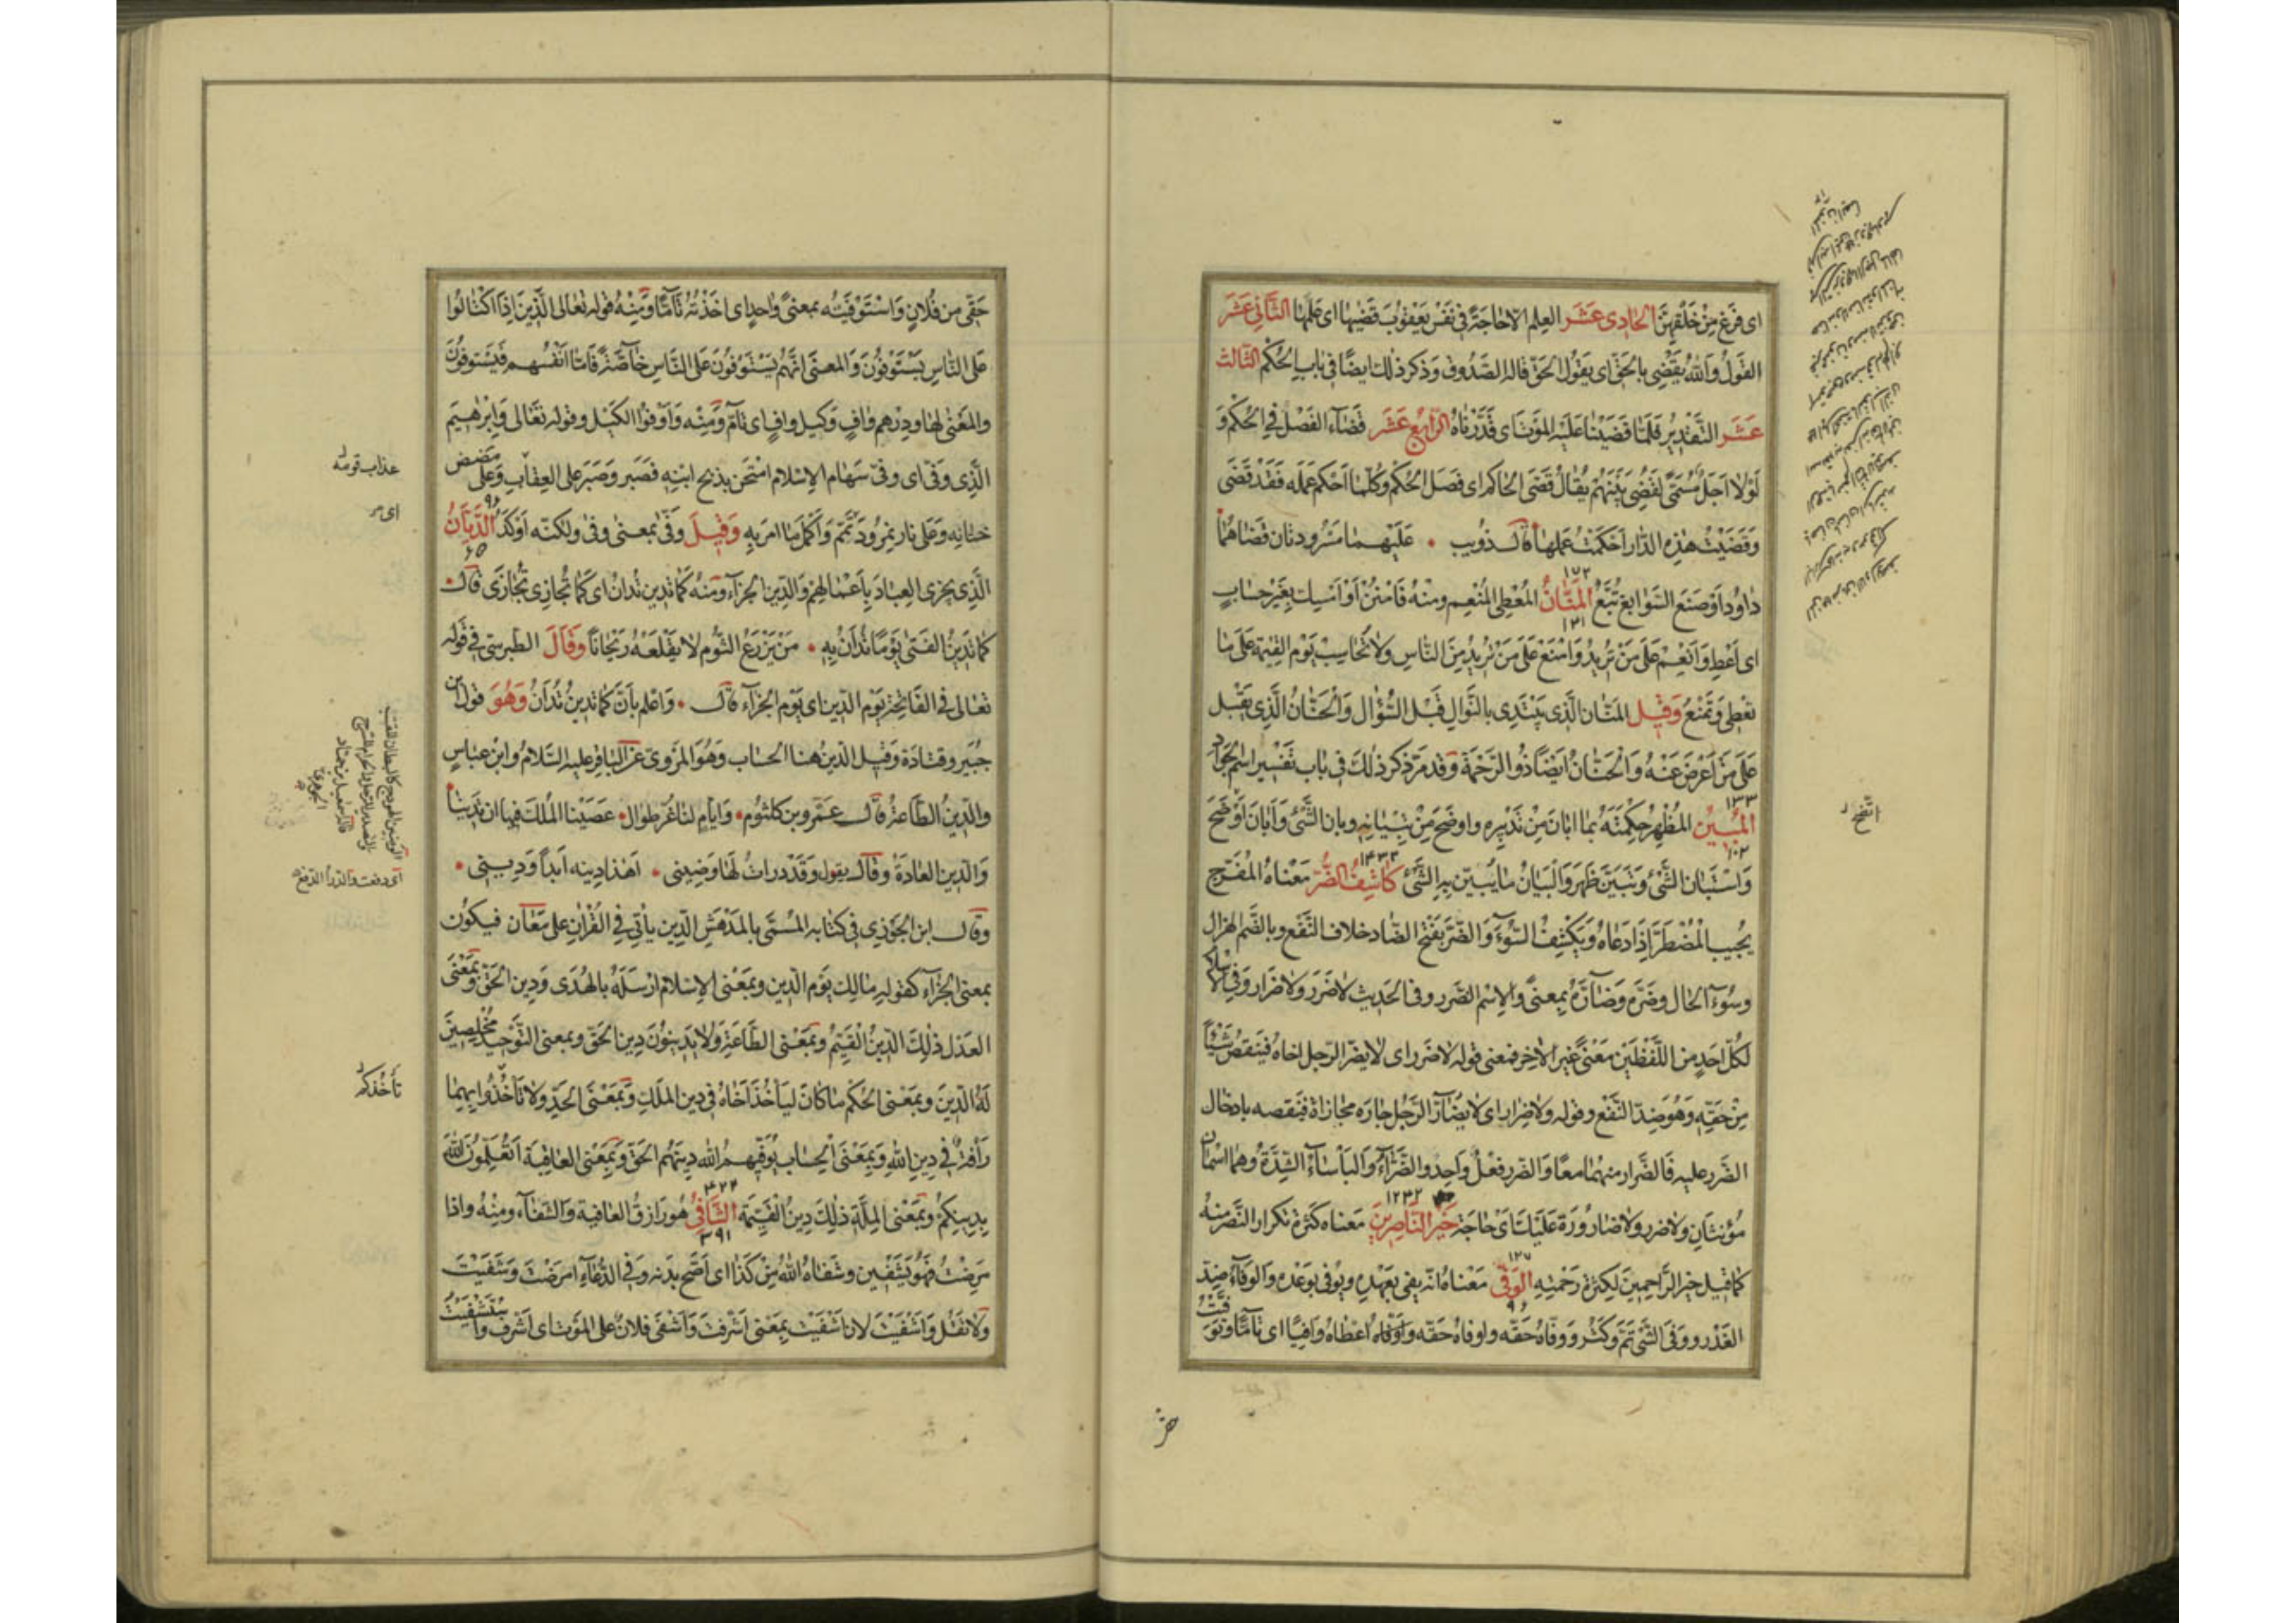 اى فَرَغَ مِنْ خَلْقِهِنَّ الحَادِى عَشَرَ العِلم الاحَاجَةً فى نَفْسِ يَعْقُوبَ قَضٰيهٰا اى عَلِمَها الثّانِى عَشَرَ
القَولُ وَاللّٰهُ يَقْضِى بِالحَقِّ اى يَقُولُ الحَقَّ قالَه الصَّدُوق وَذكرَ ذلك ايضًا فى بٰابِ الحُكْمِ الثّالث
عَشَر التَّقْدِيرُ فَلَمّا قَضَيْنا عَلَيْهِ المَوْتَ اى قَدَّرْنٰاهُ الرّابِعُ عَشَر قَضَاءُ الفَصْلِ فِى الحُكْمِ وَ
لَوْلا اَجَلٌ مُسَمًّى لَقُضِىَ بَيْنَهُمْ يُقٰالُ قَضَى الحَاكم اى فَصَلَ الحُكْمَ وَكُلّمَا اُحْكِمَ عَمَلُه فَقَدْ قُضَى
وَقَضَيْتُ هٰذِهِ الدّارَ اَحْكَمْتُ عَمَلَهٰا قالَ ذُويب • عَلَيْهِمَا مَسْرُودَتان قَضَاهُما
دٰاوُد اَوْ صَنَعُ السَّوٰابِغ تُبَّعُ المَنّانُ المُعْطِى المُنْعِم ومنْهُ فَامْنُنْ اَوْ اَمْسِك بِغَيْرِ حِسَابٍ
١٥٢
١٣١
اى اَعْطِ وَانْعِمْ عَلَى مَنْ تُرِيدُ وَامْنَعْ عَلَى مَنْ تُرِيدُ مِنَ النّاسِ وَلا تُحٰاسَبُ يَوْمَ القِيٰمَةِ عَلَى مَا
تُعْطِى وَتَمْنَعُ وَقِيلَ المَنّان الَّذِى يَبْتَدِى بِالنَّوال قَبْلَ السُّؤٰالِ وَالحَنّانُ الَّذِى يُقْبِلُ
عَلَى مَنْ اَعْرَضَ عَنْهُ وَالحَنّانُ ايْضًا ذُو الرَّحْمَة وَقد مَرَّ ذكر ذٰلِكَ فى بٰاب تَفْسِير اسْم الجَوٰاد
١٣٣
المُبِين المُظْهِر حِكمَتَهُ بمَا ابٰانَ مِنْ تَدْبِيرِهِ واوضَحَ مِنْ تِبْيٰانِهِ وبان الشَّئُ وَابَانَ اَوْضَحَ
١٠٢
وَاسْتَبٰان الشَّئُ وتَبَيَّنَ ظَهَرَ وَالبَيٰانُ مٰا يُبَيَّن بِهِ الشَّئُ كَاشِفُ الضُّرِّ مَعْنَاهُ المُفَرِّج
١٤٣٢
يُجِيبُ المُضْطَرَّ اِذَا دَعٰاهُ وَيَكْشِفُ السُّوءَ وَالضَّرّ بِفَتْح الضّاد خلاف النَّفْع وبِالضَّمِّ الهُزال
وسُوءُ الحٰال وضَرَّهُ وَضَارَّهُ بمعنًى والإِسْم الضَّرَر وفى الحَدِيث لا ضَرَرَ ولا ضِرار وَفى الاسلام
لِكُلِّ اَحَدٍ من اللَّفْظَيْن مَعْنًى غَيْرُ الاخِر فَمعنى قوله لا ضَرَر اى لا يَضُرّ الرّجلُ اخاه فَيَنْقُصُ شَيْئًا
مِنْ حَقِّهِ وَهُوَ ضِدّ النَّفْع وقوله ولا ضِرار اى لا يُضَارُّ الرَّجُل جٰارَه مجازاةً فيَنْقصه بادخٰال
الضَّرَر عليه فَالضِّرار منهُمَا معًا وَالضَّرَر فِعْلُ وٰاحِدٍ والضَّرّاءُ وَالبَأسَاءُ الشِّدَّةُ وهما اسْمٰان
مُؤَنَّثَان ولا ضَرَر ولا ضَارُورَةَ عَلَيْكَ اَىْ حٰاجَةَ خَيْرُ النّاصِرِينَ مَعناه كَثْرَةُ تكرار النَّصْرِ مِنْهُ
١٢٣٢
كَمَا قِيل خير الرَّاحِمِينَ لِكثرَةِ رَحْمَتِهِ الوَفِىُّ مَعْنَاهُ انّه يَفِى بعَهْدِهِ ويُوفى بوَعْدِه وَالوفَاء ضِدّ
١٢٧
٩٦
الغَدْر ووَفَى الشَّئ تَمَّ وَكَثُرَ ووَفّاهُ حَقَّه واوفاهُ حَقّه وَاَوْفاه اعْطٰاهُ وَافِيًا اى تٰامًّا وتَوَفَّيْتُ
اتّضح
حَقِّى من فُلانٍ وَاسْتَوْفَيْتُه بمعنًى وٰاحِدٍ اى اخَذْتُه تٰامًّا وَمِنْهُ قوله تعٰالى الَّذِينَ اِذَا اكْتٰالُوا
عَلَى النّاسِ يَسْتَوْفُونَ وَالمعنَى انَّهُمْ يَسْتَوْفُونَ عَلَى النّاسِ خٰاصَّةً فَامّا انْفُسُهم فَيَسْتَوفُونَ
والمَعْنى لهٰا ودِرْهم وٰافٍ وَكيل وافٍ اى تٰامّ وَمنه وَاَوْفوا الكَيْل وقوله تعَالى وَاِبْرٰهِيمَ
الَّذِى وَفّى اى وفّى سَهٰام الإِسْلام امْتُحِنَ بِذبح ابْنِه فَصَبَر وَصَبَرَ على العِقٰاب وَعَلى مَضَض
خِتٰانِه وَعَلى نٰار نمْرُود تَمَّم وَاَكمل مَا امر بِهِ وَقِيلَ وَفَى بمعنى وفّى ولكنّه اَوكَدُ الدَّيّانُ
٩٦
٦٥
الَّذِى يَجزِى العِبٰادَ بِاعْمٰالِهِمْ وَالدِّين الجَزَاء وَمنْه كَمٰا تَدِين تُدٰانُ اى كَمَا تُجَازِى تُجَازَى قال
كَمٰا يَدِينُ الفَتٰى يَوْمًا يُدَانُ بِهِ • مَنْ يَزْرَعُ الثُّوم لا يَقْلَعْهُ رَيْحَانًا وَقالَ الطّبرسىّ فِى قَوْله
تعَالى فى الفَاتِحَة يَوْم الدِّين اى يَوْم الجَزَاء قال • وَاعْلم بِاَنَّ كمَا تَدِينُ تُدَانُ وَهُوَ قول ابن
جُبَيْر وقتٰادة وَقِيل الدِّينُ هنا الحسَاب وَهُوَ المَرْوى عَن البَاقِر عليه السَّلام وابن عبّاس
والدِّينُ الطّاعة قال عَمْرو بن كلثوم • وَايّامٍ لنا غُرٍّ طِوال • عَصَيْنا المَلْكَ فيهَا ان نَدِينا
وَالدِّين العٰادَة وقال يقول وَقَدْ دَرأتُ لَهٰا وَضِينى • اَهٰذا دِينه اَبَدًا وَدِينى •
وقال ابن الجَوْزِى فى كتابه المُسَمَّى بالمُدْهِش الدِّين يأتى فى القُرْانِ على مَعَانٍ فيكون
بمعنى الجَزَاء كقوله مٰالِك يَوْمِ الدِّين وبمَعْنى الإِسْلام اَرْسَلَهُ بالهُدَى وَدِين الحَقّ وَبِمَعْنى
العَدْل ذٰلِكَ الدِّينُ القَيِّمُ وبمَعْنى الطَّاعَة وَلا يَدِينُونَ دِينَ الحَقِّ وبمعنى التَّوْحِيد مُخْلِصِينَ
لَهُ الدِّينَ وبمَعْنى الحُكم مٰا كانَ لِيَأْخُذَ اَخَاهُ فى دِين المَلِك وَبِمَعْنَى الحَدّ ولا تَأْخُذُوا بِهِمٰا
رَأْفَةٌ فى دِين اللّٰهِ وَبِمَعْنَى الحِسَاب يُوَفِّيهم اللّٰه دِينَهُم الحَقّ وَبِمَعْنى العٰافِيَة اَتُعَلِّمُونَ اللّٰهَ
بِدِينِكُمْ وبمَعْنى المِلَّة ذٰلِكَ دِينُ القَيِّمَة الشّافِى هُوَ رٰازِقُ العَافِية وَالشّفٰاء ومِنْهُ واذا
٣٩١
مَرِضْتُ فَهُوَ يَشْفِينِ وشَفَاهُ اللّٰهُ مِنْ كَذَا اى اَصَحّ بَدَنه وَفى الدُّعٰاءِ امرَضْتَ وَشَفَيْتَ
ولا تَقُل وَاشْفَيْتَ لان اشْفَيْت بمَعْنى اَشْرَفْتَ وَاَشْفى فلانٌ على المَوْت اى اشْرف وَاسْتَشْفَيْتُ
عذاب قومه
اى
اى دفعت والدرأ الدفع
تأخذكم